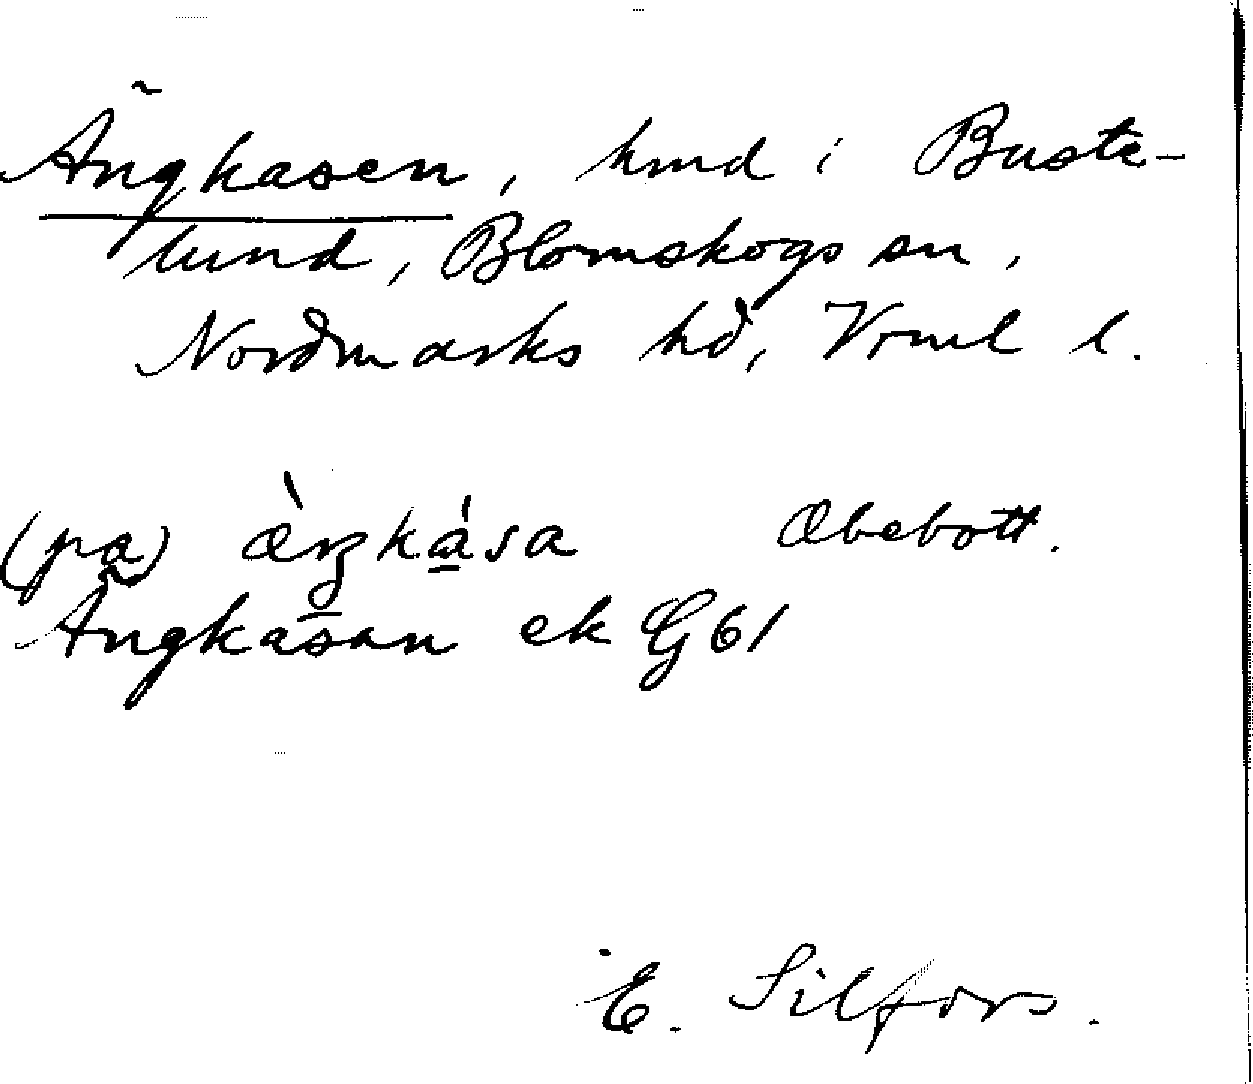 Ängkasen, hmd i Buste-
lund, Blomskogs sn,
Nordmarks hd, Vrml l.
(pa) æ̀ŋkása Obebott.
Ängkasan ek G61
E. Silfors.